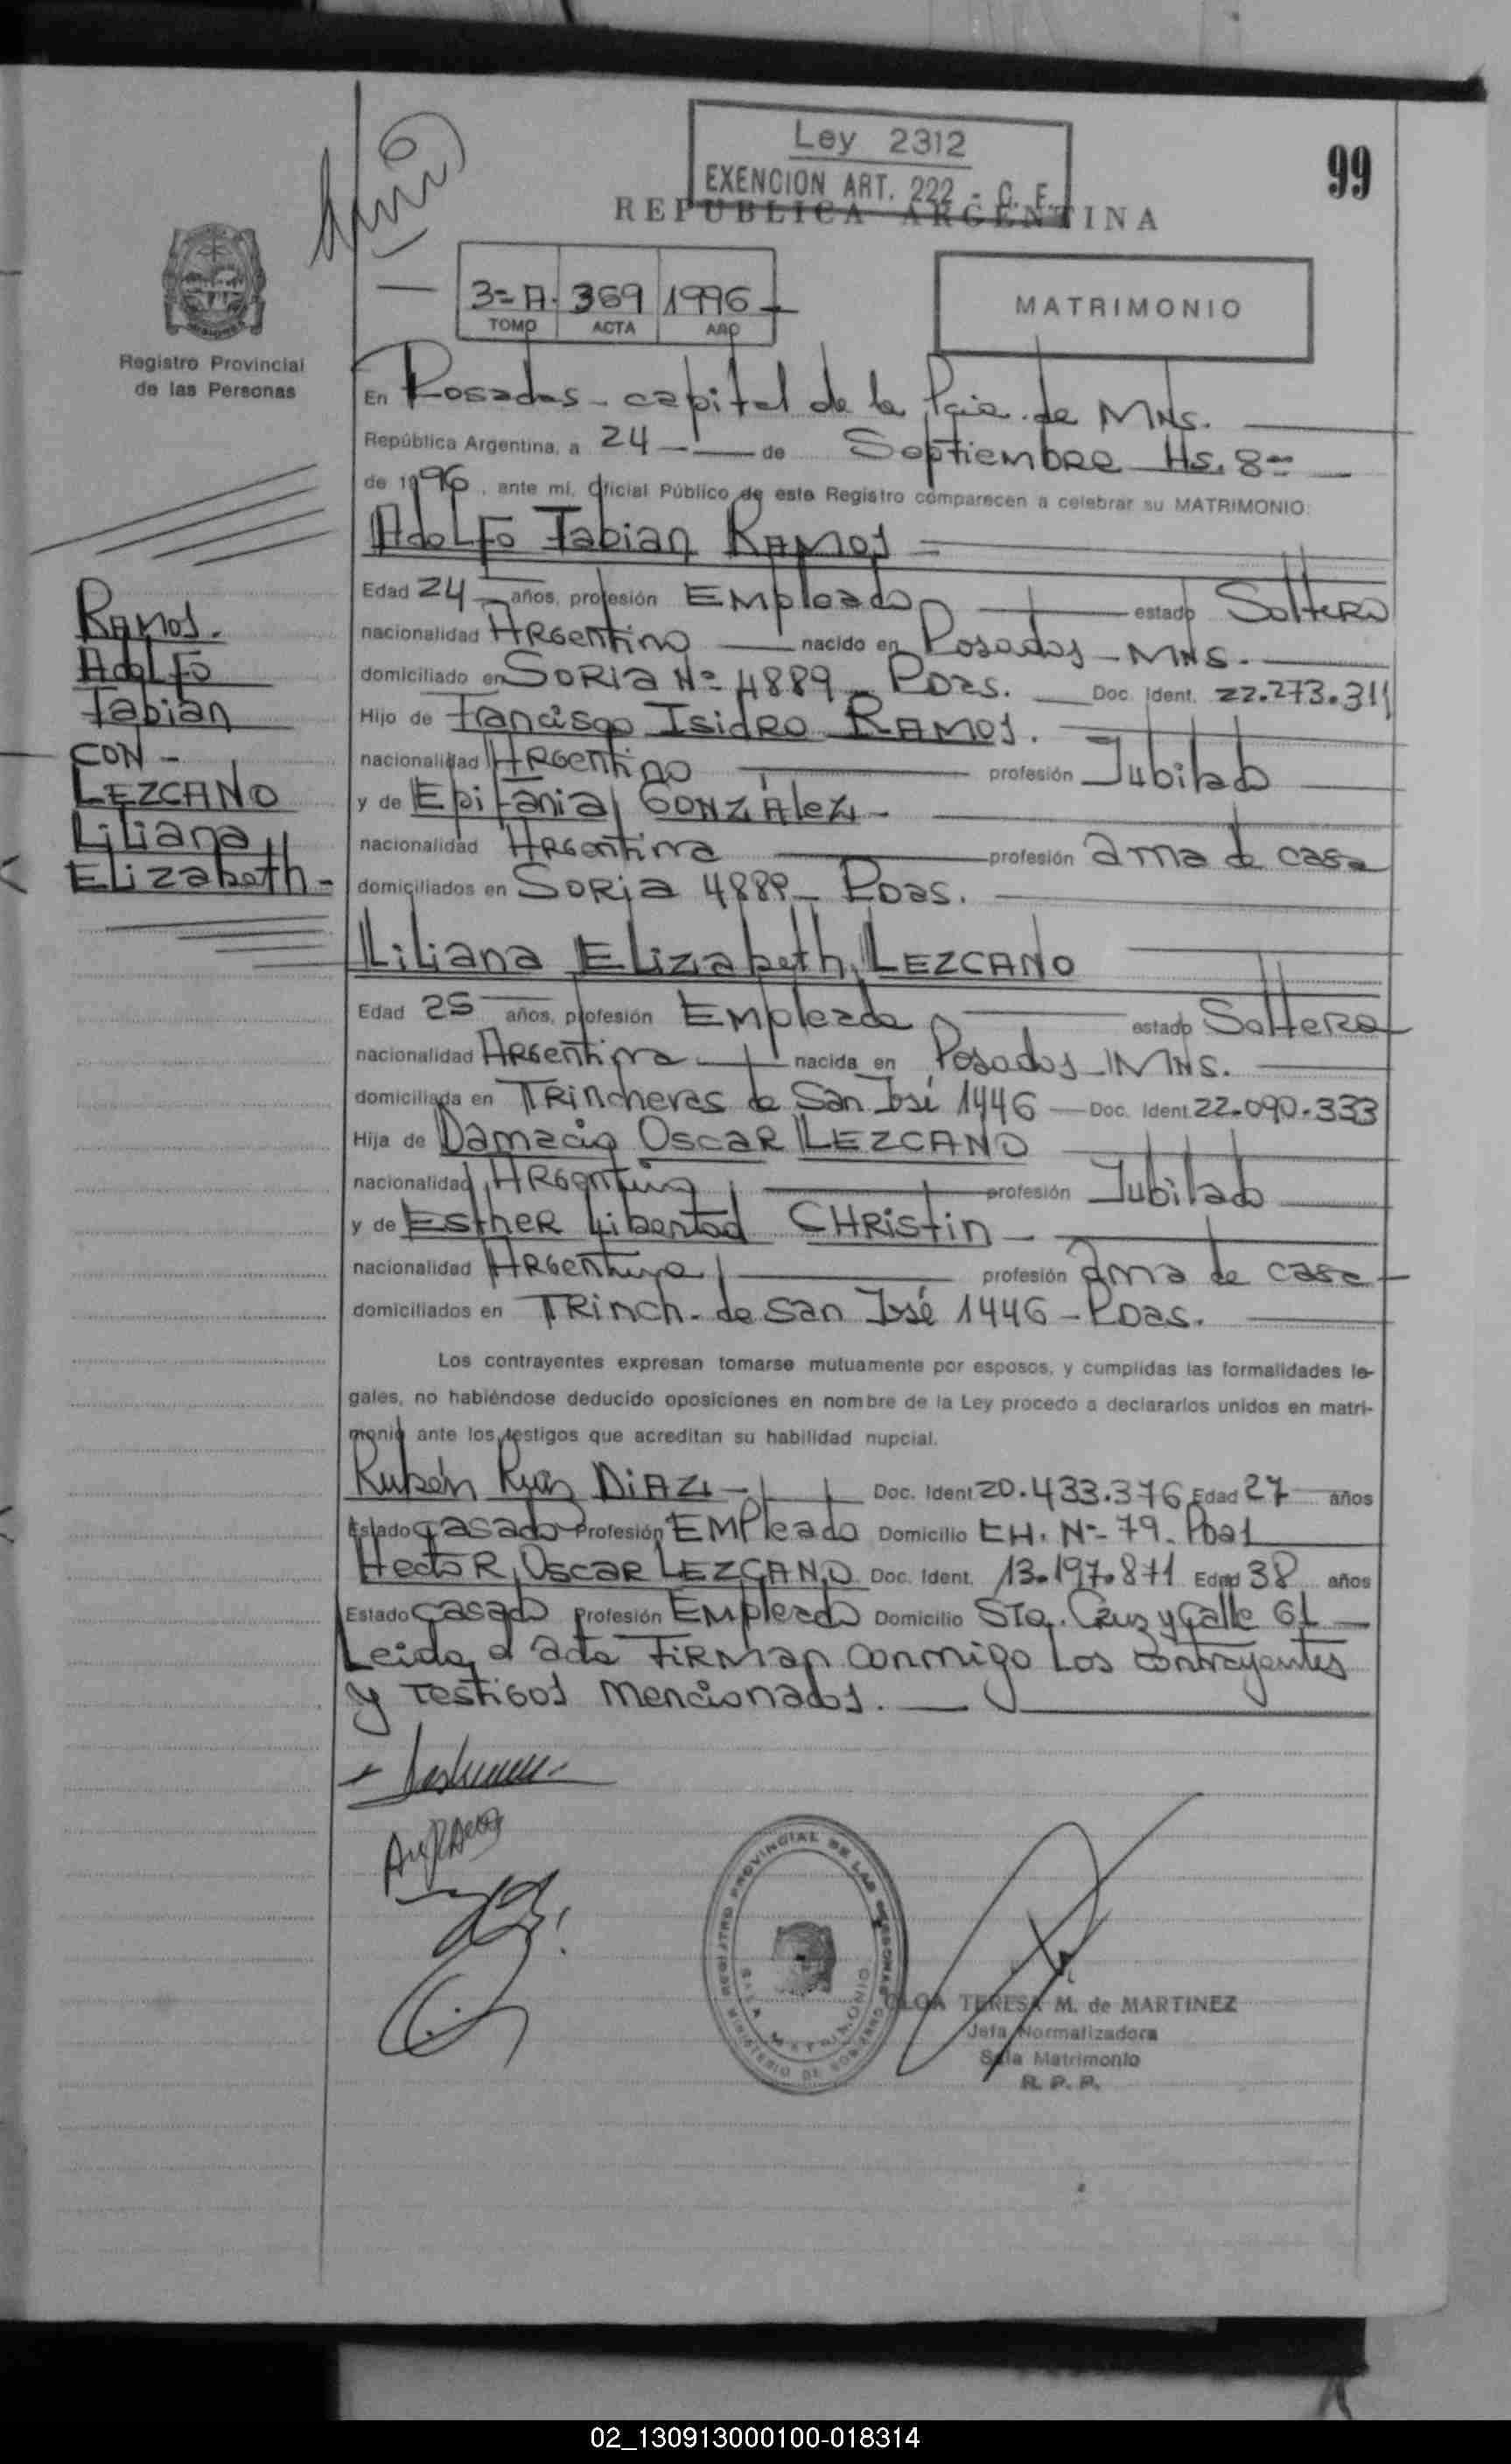 Ley 2312
EXENCION ART. 222 - C. F.
99
REPUBLICA ARGENTINA
3= A. 369 1996
TOMO ACTA AÑO
MATRIMONIO
Registro Provincial
de las Personas
En Posadas - capital de la Pcia. de MNS.
República Argentina, a 24 - de Septiembre Hs. 8=
de 1996, ante mi, Oficial Público de este Registro comparecen a celebrar su MATRIMONIO:
Adolfo Fabian RAMOS
Edad 24 años, profesión Empleado estado Soltero
nacionalidad Argentino nacido en Posadas - MNS.
domiciliado en SORIA Nº 4889 - Pdas. Doc. Ident. 22.273.311
Hijo de Francisco Isidro RAMOS.
nacionalidad Argentino profesión Jubilado
y de Epifania GONZÁLEZ -
nacionalidad Argentina profesión ama de casa
domiciliados en Soria 4889 - Pdas.
Ramos.
Adolfo
Fabian
CON -
LEZCANO
Liliana
Elizabeth -
Liliana Elizabeth LEZCANO
Edad 25 años, profesión Empleada estado Soltera
nacionalidad Argentina nacida en Posadas - MNS.
domiciliada en Trincheras de San José 1446 - Doc. Ident. 22.090.333
Hija de Damacio Oscar LEZCANO
nacionalidad Argentino profesión Jubilado
y de Esther Libertad CHRistin -
nacionalidad Argentina profesión ama de casa -
domiciliados en TRinch. de San José 1446 - Pdas.
Los contrayentes expresan tomarse mutuamente por esposos, y cumplidas las formalidades le-
gales, no habiéndose deducido oposiciones en nombre de la Ley procedo a declararlos unidos en matri-
monio ante los testigos que acreditan su habilidad nupcial.
Rubén DIAZ - Doc. Ident. 20.433.376 Edad 27 años
Estado casado Profesión EMPleado Domicilio CH. Nº 79. Pdas
Hector Oscar LEZCANO Doc. Ident. 13.197.871 Edad 38 años
Estado casado Profesión Empleado Domicilio Sta. Cruz y Calle 61
Leida el acta FIRMan conmigo Los contrayentes
y Testigos mencionados.
REGISTRO PROVINCIAL DE LAS PERSONAS
SALA MATRIMONIO
MINISTERIO DE GOBIERNO
OLGA TERESA M. de MARTINEZ
Jefa Normalizadora
Sala Matrimonio
R. P. P.
02_130913000100-018314